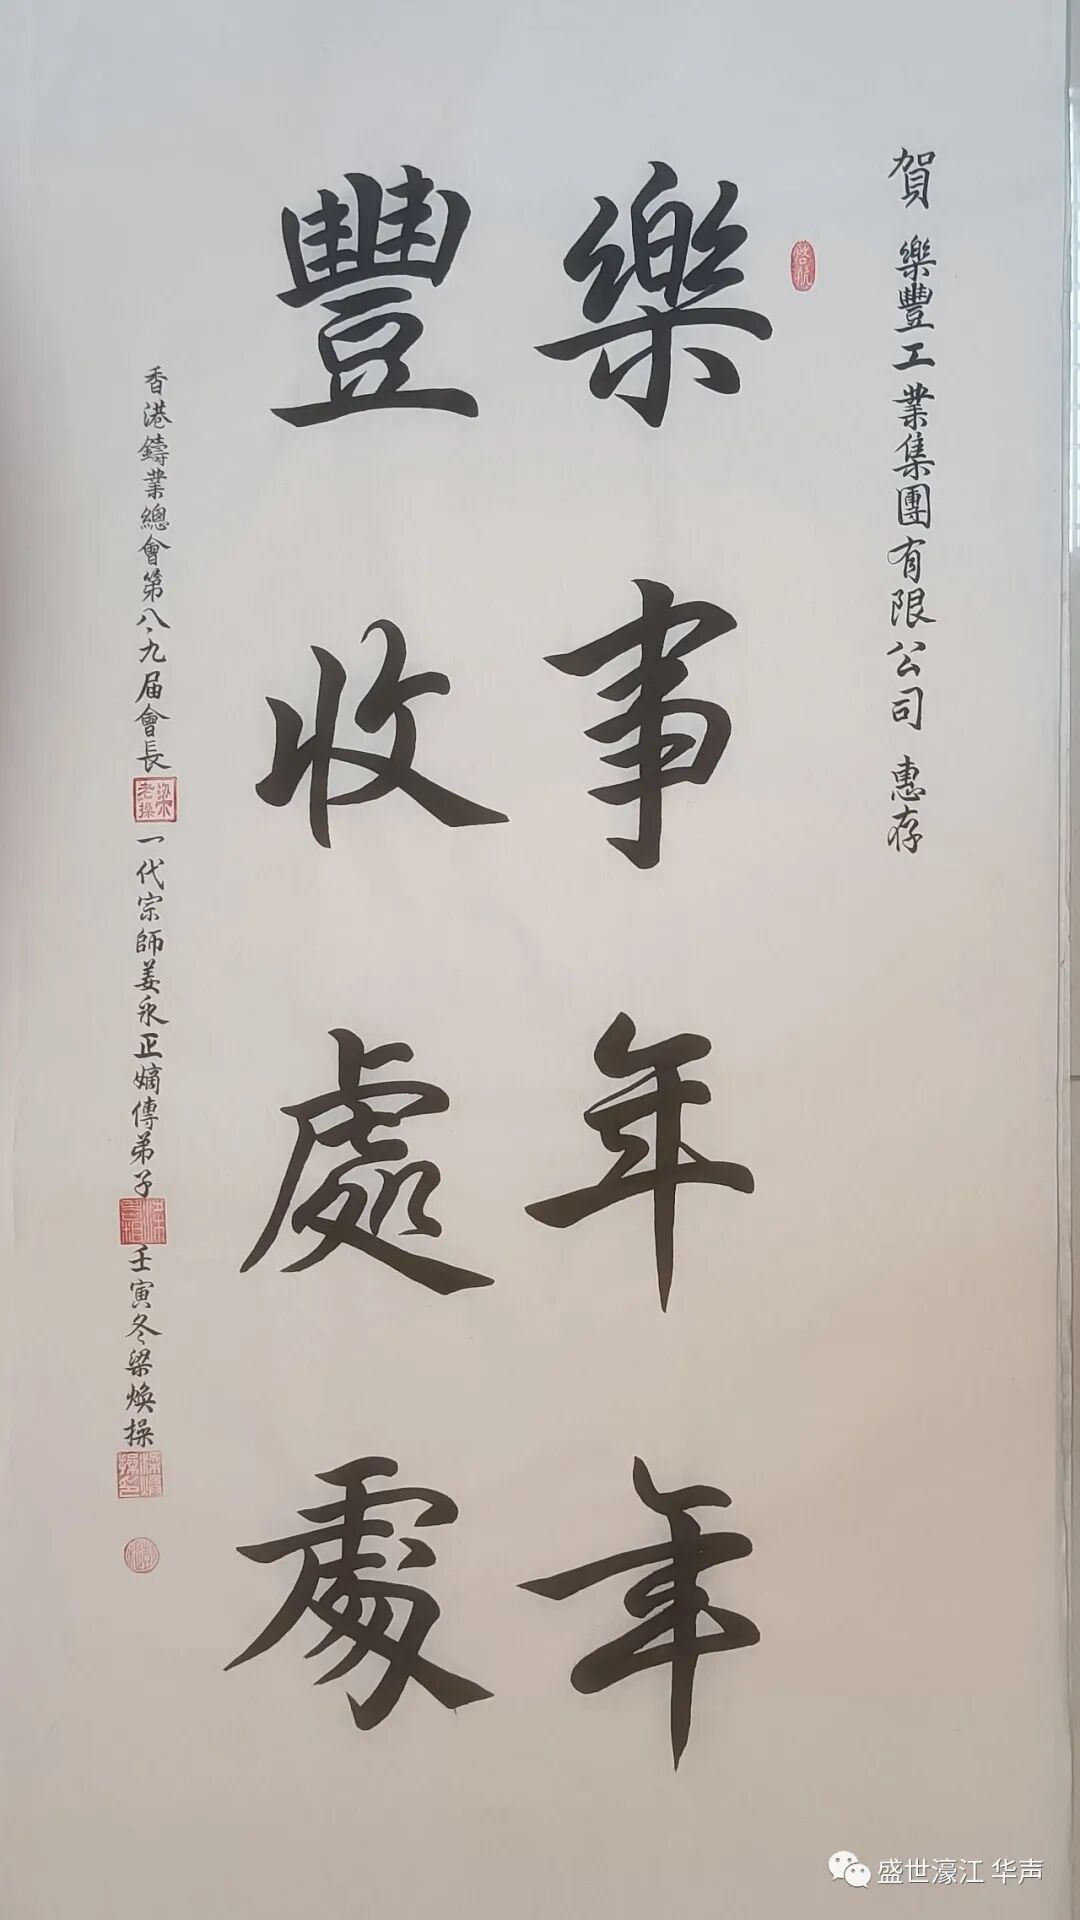 賀 樂豐工業集團有限公司 惠存
樂事年年
豐收處處
香港鑄業總會第八、九届會長
一代宗師姜永正嫡傳弟子
壬寅冬梁煥操
盛世濠江 华声